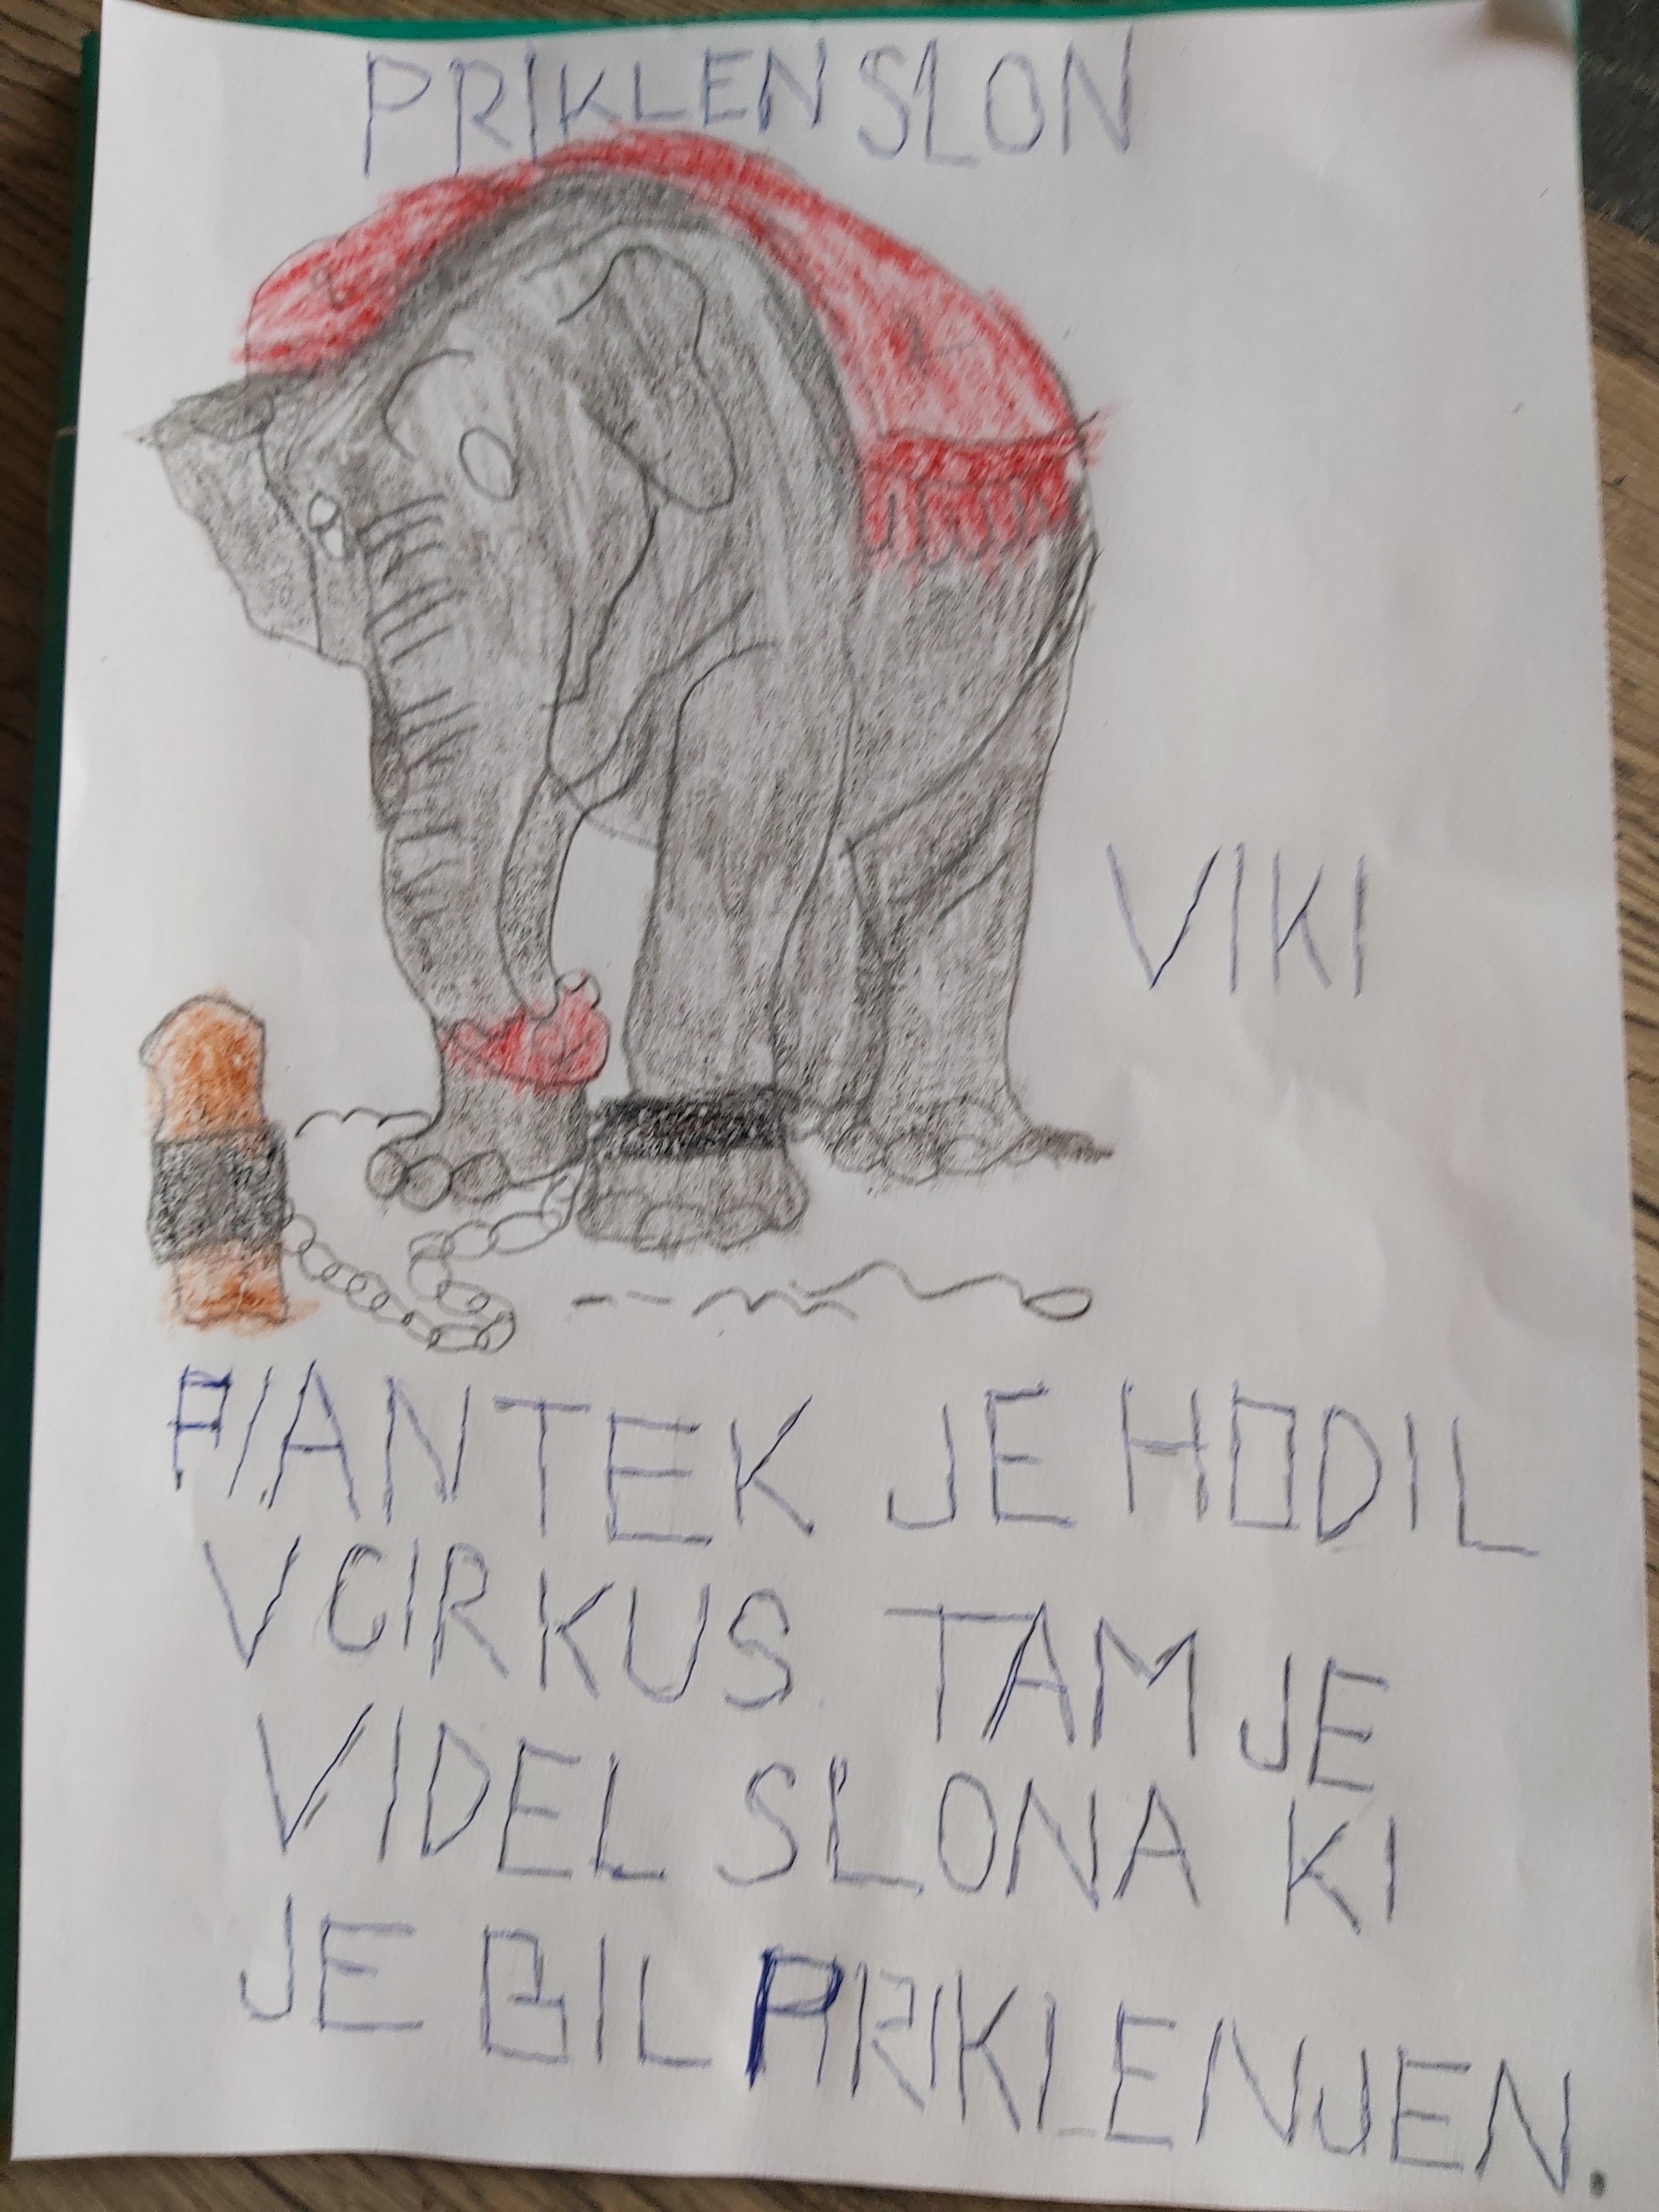 PRIKLEN SLON
VIKI
FANTEK JE HODIL
V CIRKUS TAM JE
VIDEL SLONA KI
JE BIL PRIKLENJEN.